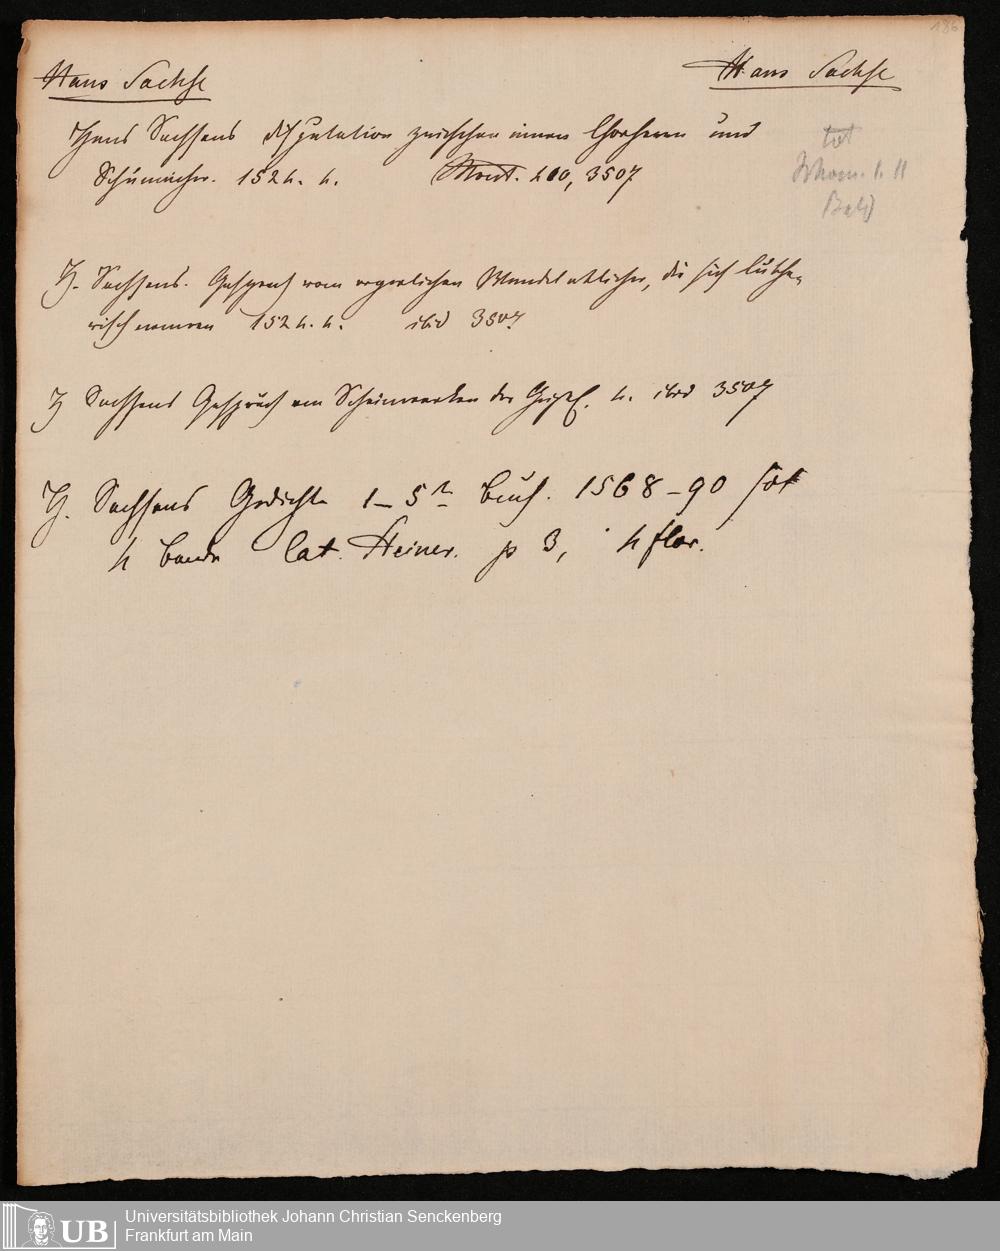 186
Hans Sachse
Hans Sachse
Hans Sachsens disputation zwischen einen Chorherrn und
Schumacher. 1524. 4. Mout. 200, 3507
tot
H. Sachsens. Gesprech vom ergerlichen Wandel etlicher, die sich luthe-
risch nennen 1524. 4. ibid 3507
H Sachsens Gespräch von Scheinwerken der Geistl. 4. ibid 3507
H. Sachsens Gedichte 1–5te Buch. 1568–90 fol
4 Bande Cat. Heiner. p 3, 4 flor.
UB
Universitätsbibliothek Johann Christian Senckenberg
Frankfurt am Main